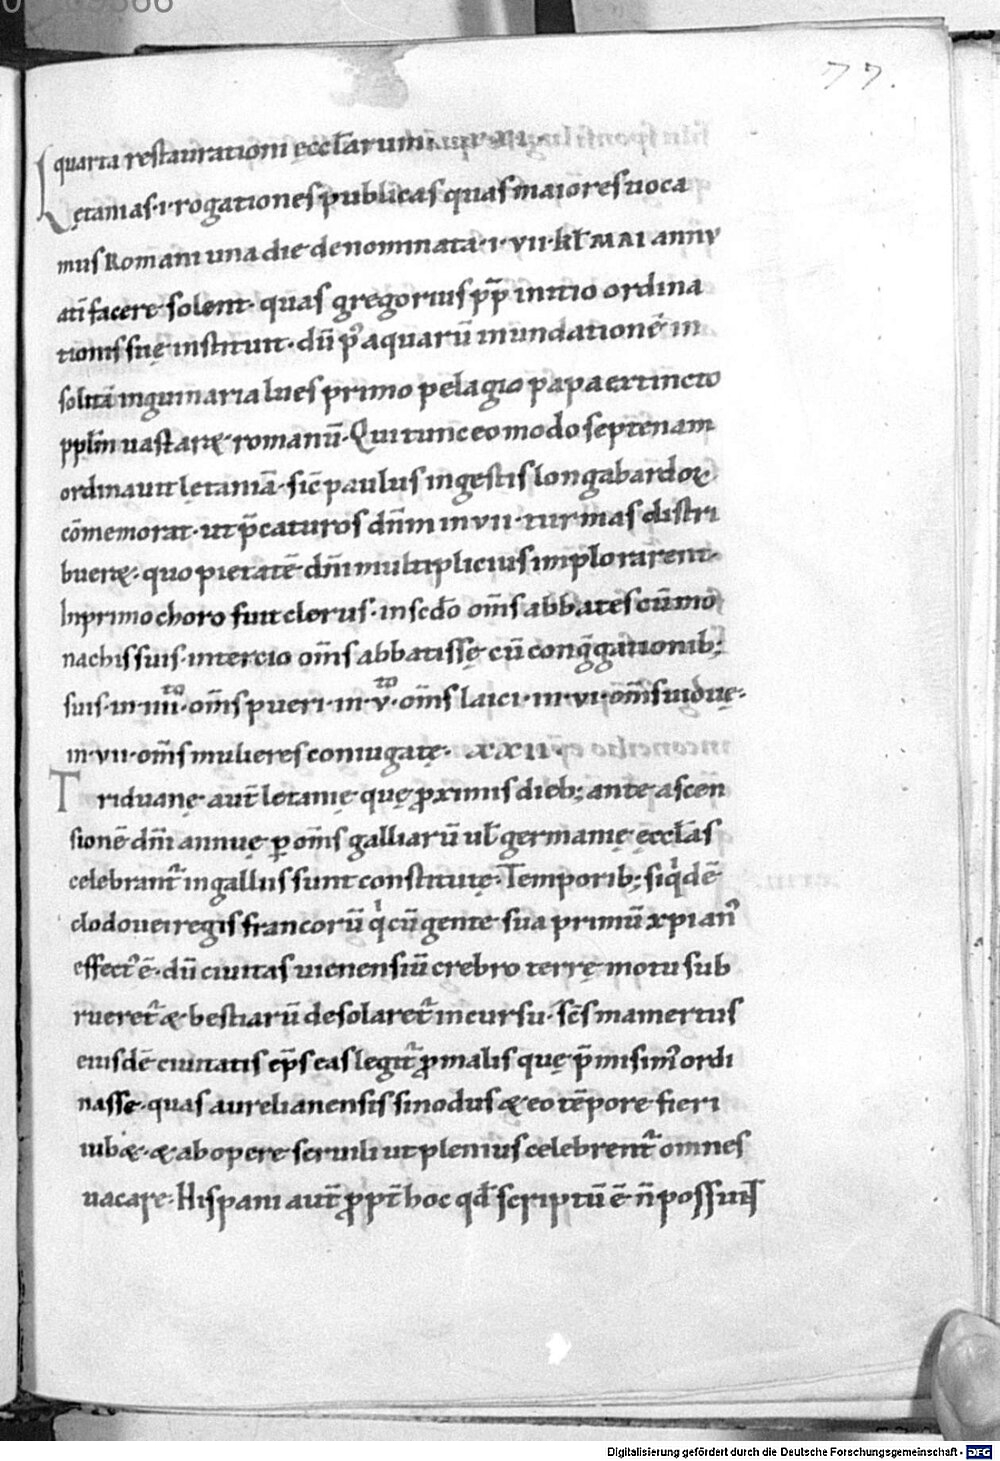 77.
quarta restaurationi ęccl̄arum.
Lętanias·i·rogationes publicas quas maiores uoca
mus Romani una die denominata·i·vii·kl̄ MAI annu
ati facere solent· quas gregorius pp̄ initio ordina
tionis suę instituit· dū p' aquarū inundationē in
solitā inguinaria lues primo pelagio papa extincto
pplm̄ uastaret romanū· Qui tunc eo modo septenam
ordinauit lętaniā· sic̄ paulus in gestis longabardoꝝ
cōmemorat· ut p̄caturos dn̄m in vii· turmas distri
bueret· quo pietatē dn̄i multiplicius implorarent·
In primo choro fuit clerus· in scd̄o om̄s abbates cū mo
nachis suis· in tercio om̄s abbatissę cū congḡationib;
suis· in iiii^to· om̄s pueri· in v^to· om̄s laici· in vi· om̄s uiduę·
in·vii·om̄s mulieres coniugatę· xxii·
Triduanę aut̄ letanię quę ꝓximis dieb; ante ascen
sionē dn̄i annuę ꝑ om̄s galliarū ul̄ germanię ęccl̄as
celebrant᷑ in galliis sunt constitutę· Temporib; siq'dē
clodouei regis francorū q' cū gente sua primū xpian'
effect' ē· dū ciuitas uienensiū crebro terrę motu sub
rueret᷑ & bestiarū desolaret᷑ incursu· sc̄s mamertus
eiusdē ciuitatis ep̄s eas legit᷑ ꝓ malis quę p̄misim' ordi
nasse· quas aurelianensis sinodus & eo tēpore fieri
iub&· & ab opere seruili ut plenius celebrent᷑ omnes
uacare· Hispani aut̄ ꝓpt̄ hoc qd̄ scriptū ē n̄ possunt
Digitalisierung gefördert durch die Deutsche Forschungsgemeinschaft - DFG